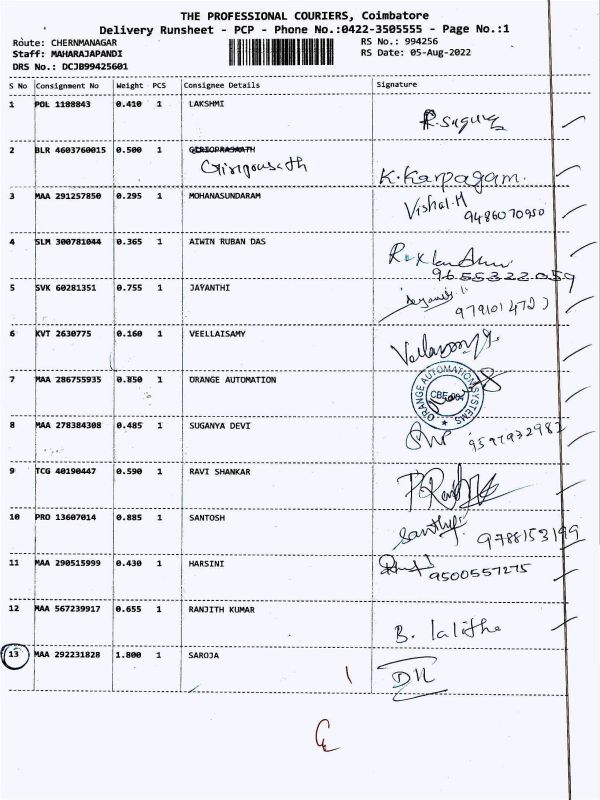 THE PROFESSIONAL COURIERS, Coimbatore
Delivery Runsheet - PCP - Phone No.:0422-3505555 - Page No.:1
Route: CHERNMANAGAR
Staff: MAHARAJAPANDI
DRS No.: DCJB99425601
RS No.: 994256
RS Date: 05-Aug-2022
S No Consignment No Weight PCS Consignee Details Signature
1 POL 1188843 0.410 1 LAKSHMI
2 BLR 4603760015 0.500 1 GIRIOPRASAATH
K.Karpagam.
3 MAA 291257850 0.295 1 MOHANASUNDARAM Vishal.H
9486070950
4 SLM 300781044 0.365 1 AIWIN RUBAN DAS
9655322059
5 SVK 60281351 0.755 1 JAYANTHI
6 KVT 2630775 0.160 1 VEELLAISAMY
7 MAA 286755935 0.850 1 ORANGE AUTOMATION ORANGE AUTOMATION SYSTEMS
8 MAA 278384308 0.485 1 SUGANYA DEVI
9597932982
9 TCG 40190447 0.590 1 RAVI SHANKAR
10 PRO 13607014 0.885 1 SANTOSH
9788153199
11 MAA 290515999 0.430 1 HARSINI
9500557275
12 MAA 567239917 0.655 1 RANJITH KUMAR
B. lalitha
13 MAA 292231828 1.800 1 SAROJA